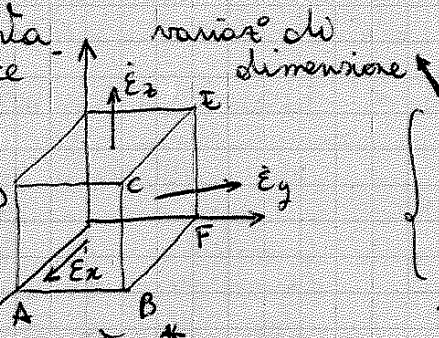 variaz° di
dimensione
ε̇z
E
C
ε̇y
F
ε̇x
A
B